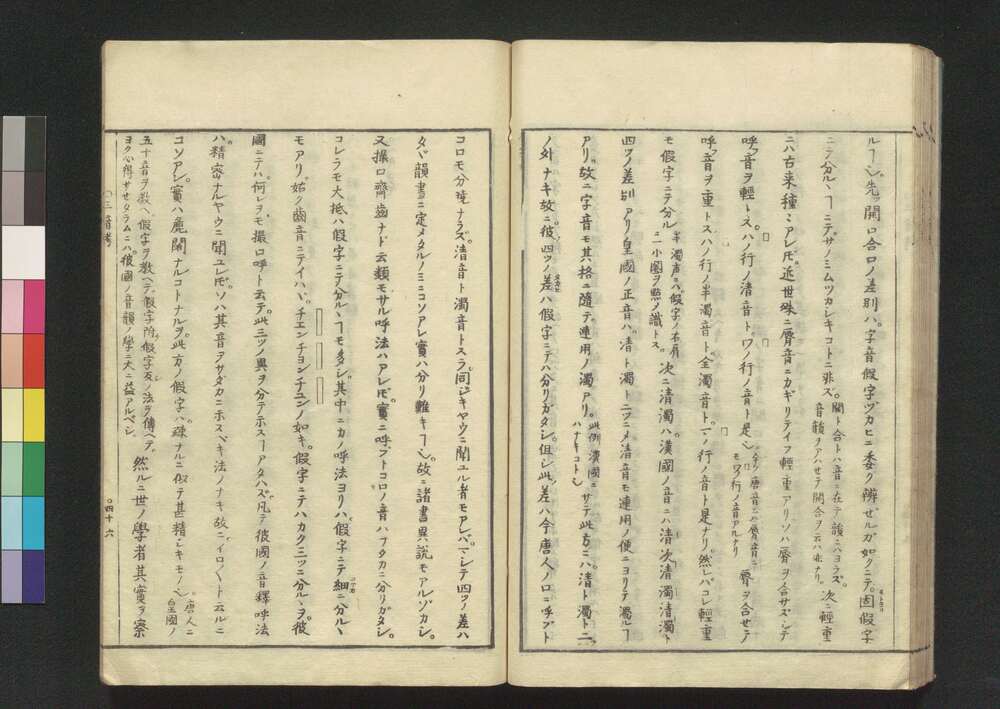 ルヿ也。先ヅ開口合口ノ差別ハ。字音假字ヅカヒニ委ク辨ゼルガ如クニテ。固假字
ニテ分ルヽヿニテ。サノミムツカシキコトニ非ズ。開ト合トハ音ニ在テ韻ニハヨラズ。音韻ヲアハセテ開合ヲ云ハ非ナリ。次ニ輕重
ニハ古来種々アレ𪜈。近世殊ニ脣音ニカギリテイフ輕重アリ。ソハ脣ヲ合サズシテ
呼ブ音ヲ輕トス。ハノ行ノ清音ト。ワノ行ノ音ト是也。今ノ唐音ニハ脣音ニモワノ行ノ音アルナリ 脣ヲ合セテ
呼ブ音ヲ重トス。ハノ行ノ半濁音ト。全濁音ト。マノ行ノ音ト是ナリ。然レバコレ輕重
モ假字ニテ分ル 半濁声ニハ。假字ノ右肩ニ小圏ヲ點ジ識トス。 次ニ清濁ハ。漢國ノ音ニハ清次清濁清濁ト
四ツノ差別アリ。皇國ノ正音ハ。清ト濁ト二ツニメ清音モ連用ノ便ニヨリテ濁ルヿ
アリ。故ニ字音モ其格ニ隨テ。連用ノ濁アリ。此例漢國ニハナキコト也 サテ此方ニハ。清ト濁トニ
ノ外ナキ故ニ。彼四ツノ差ハ假字ニテハ分リガタシ。但シ此差ハ今唐人ノ口ニ呼ブト
コロモ分暁ナラズ。清音ト濁音トスラ。同ジキヤウニ聞ユル者モアレバ。マシテ四ツノ差ハ
タヾ韻書ニ定メタルノミニコソアレ實ハ分リ難キヿ也。故ニ諸書異説モアルゾカシ。
又撮口齊齒ナド云類モサル呼法ハアレ𪜈。實ニ呼ブトコロノ音ハフタカニ分リガタシ。
コレラモ大抵ハ假字ニテ分ルヽヿモ多シ。其中ニカノ呼法ヨリハ。假字ニテ細ニ分ルヽ
モアリ。始ク齒音ニテイハヾ。チエンチヨンチユンノ如キ。假字ニテハカク三ツニ分ルヽヲ。彼
國ニテハ。何レヲモ撮口呼ト云テ。此三ツノ異ヲ分テホスヿアタハズ。凡テ彼國ノ音釋呼法
ハ。精密ナルヤウニ聞ユレ𪜈。ソハ其音ヲサダカニホスベキ法ノナキ故ニ。イロ〱ト云ルニ
コソアレ。實ハ麁闊ナルコトナルヲ。此方ノ假字ハ。疎ナルニ似テ甚精シキモノ也。唐人ニ皇國ノ
五十音ヲ教ヘ。假字ヲ教ヘテ。假字附假字反ノ法ヲ傳ヘテ。ヨク心得サセタラムニハ。彼國ノ音韻ノ學ニ大ニ益アルベシ。 然ルニ世ノ學者其實ヲ察
〇四十六